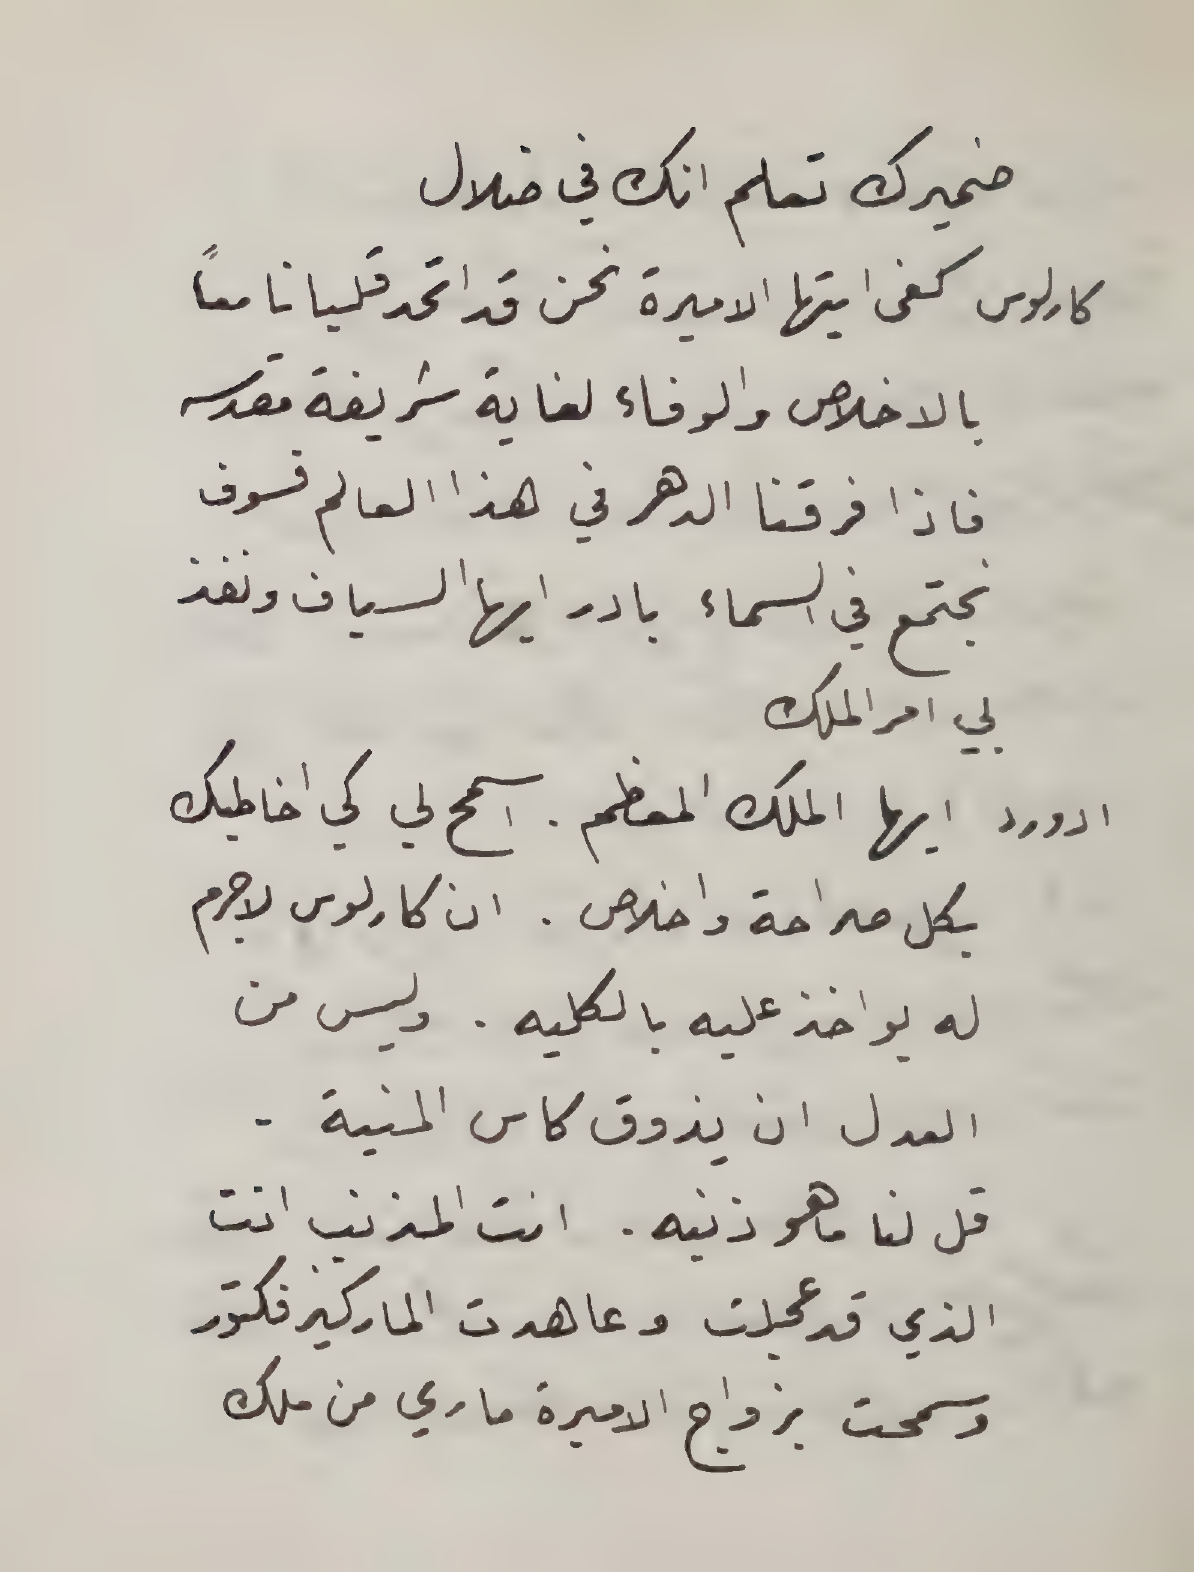 ضميرك تعلم انك في ضلال
كارلوس كفى ايتها الاميرة نحن قد اتحد قلبانا معاً
بالاخلاص والوفاء لغاية شريفة مقدسه
فاذا فرقنا الدهر في هذا العالم فسوف
نجتمع في السماء بادر ايها السياف ونفذ
بي امر الملك
ادورد ايها الملك المعظم . اسمح لي كي اخاطبك
بكل صراحة واخلاص . ان كارلوس لاجرم
له يواخذ عليه بالكليه . وليس من
العدل ان يذوق كاس المنية -
قل لنا ماهو ذنبه . انت المذنب انت
الذي قد عجلت وعاهدت الماركيز فكتور
وسمحت بزواج الاميرة ماري من ملك